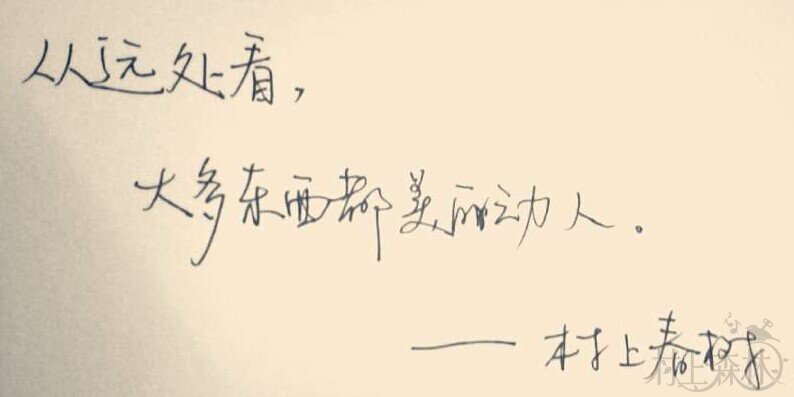 从远处看，
大多东西都美丽动人。
——村上春树
村上森林